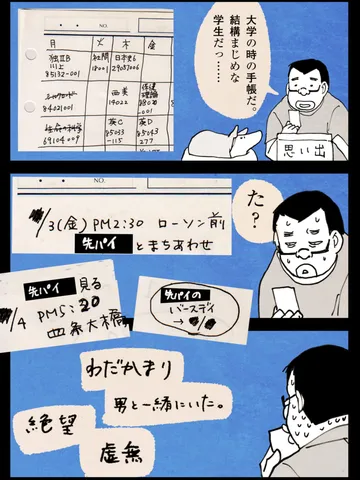 大学の時の手帳だ。
結構まじめな
学生だっ……
思い出
NO.
月 火 木 金
独ⅡB
川上
85132-001
社問
18001
日本史6
29087006
84021001
西美
14022
保健
理論
-001
69104009
英C
85033
-115
英D
85043
277
た?
NO.
/3(金)PM2:30 ローソン前
先パイ とまちあわせ
先パイ 見る
/4 PM5:20
四条大橋
先パイの
バースデイ
→
わだかまり
男と一緒にいた。
絶望
虚無